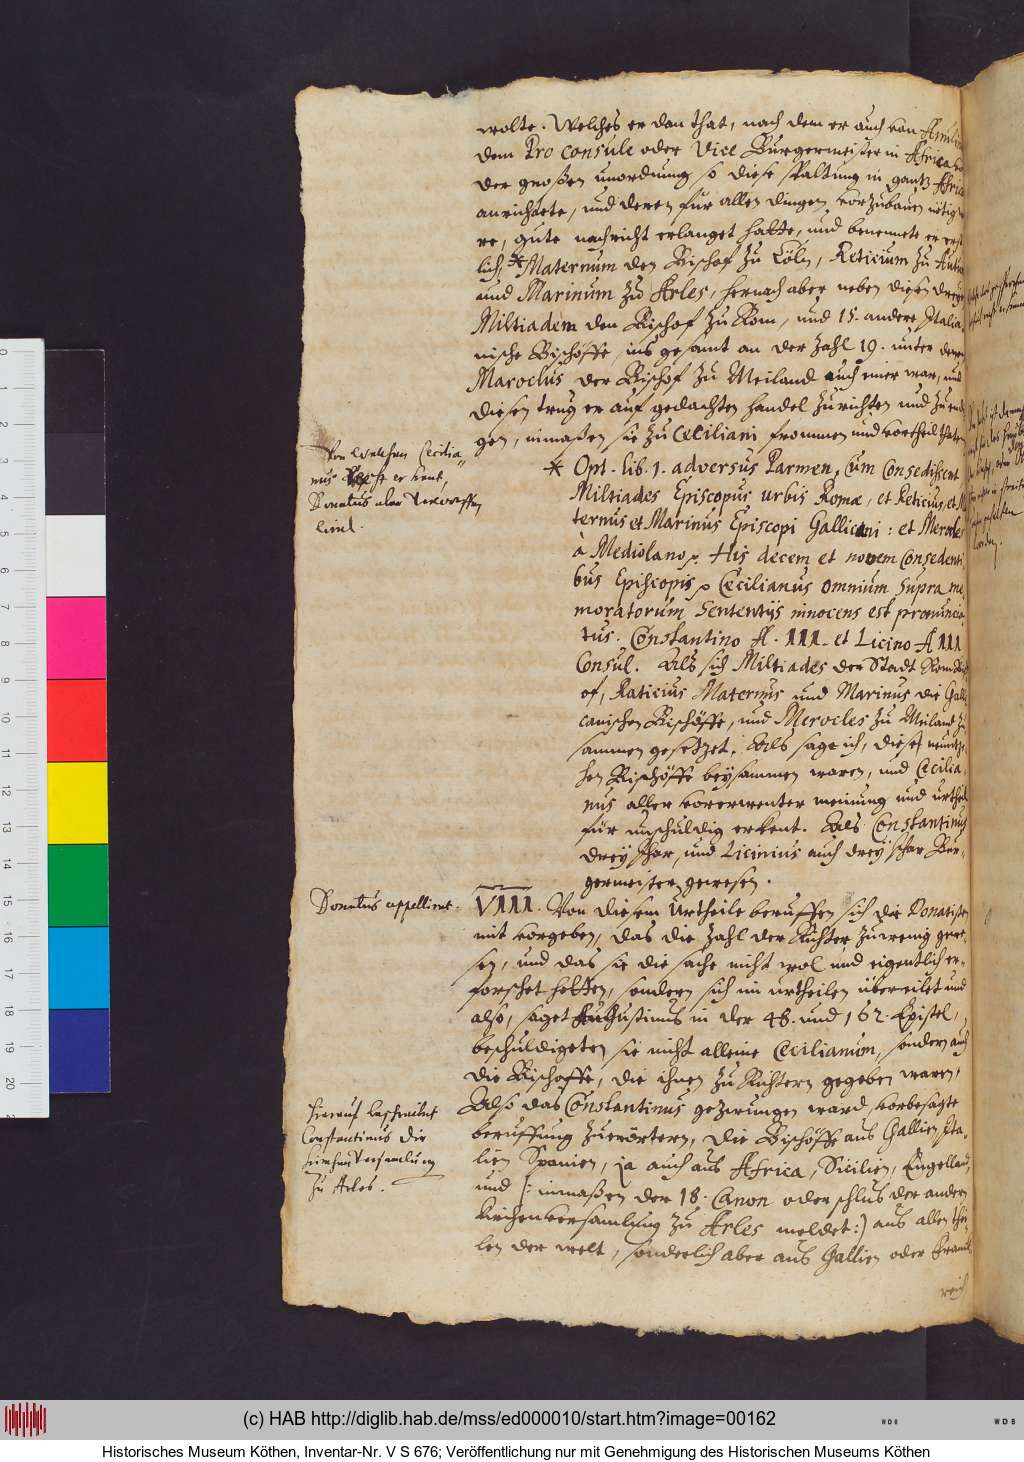 wolte. Welches er dan that, nach dem er auch von
dem Pro Consule oder Vice Burgermeister in Africa
der großen unordnung so diese spaltung in gantz Africa
anrichtete, und deren für allen dingen vorzubauen nötig
re, gute nachricht erlanget hatte, und benennete er erst
lich, * Maternum den Bischof zu Cöln, Reticium zu
und Marinum zu Arles, hernach aber neben diesen dreyen
Miltiadem den Bischof zu Rom, und 15. andere Italia
nische Bischöffe, ins gesamt an der Zahl 19. unter denen
Maroclus der Bischof zu Meiland auch einer war, und
diesen trug er auf gedachten handel zurichten und zuendi
gen, inmaßen sie zu Ceciliani frommen und vortheil thaten
Von welchen Cecilia-
nus
Donatus aber verworffen
wird.
* Opt. lib. 1. adversus Parmen, Cum Consedissent
Miltiades Episcopus urbis Romæ, et Reticius, et Ma
ternus et Marinus Episcopi Gallicani: et Merocles
à Mediolano, His decem et novem Consedenti
bus Episcopis, Cecilianus omnium supra me
moratorum Sententijs innocens est pronuncia
tus. Constantino A. III. et Licino A III
Consul. Als sich Miltiades der Stadt Rom Bisch
of, Raticius Maternus und Marinus die Galli
canischen Bischöffe, und Merocles zu Meiland zu
sammen gesetzet. Als sage ich, diese neuntze
hen Bischöffe beysammen waren, und Cecilia-
nus aller vorerwenter meinung und urtheil
für unschuldig erkent. Als Constantinus
drey Ahar, und Licinius auch drey Ahar Bur-
germeister gewesen.
Donatus appelliret.
VIII. Von diesem Urtheile beruffen sich die Donatisten
mit vorgeben, das die Zahl der Richter zuwenig gewe-
sen, und das sie die sache nicht wol und eigentlich er-
forschet hetten, sondern sich im urtheilen übereilet und
also, saget Augustinus in der 48. und 162. Epistel,
beschuldigeten sie nicht alleine Cecilianum, sondern auch
die Bischoffe, die ihnen zu Richtern gegeben waren,
Also das Constantinus gezwungen ward, vorbesagte
beruffung zuerörtern, die Bischöffe aus Gallien, Ita-
lien Spanien, ja auch aus Africa, Sicilien, Engelland,
und (: inmaßen der 18. Canon oder schlus der andern
Kirchenversamlung zu Arles meldet:) aus allen thei
len der welt, sonderlich aber aus Gallien oder Franck
reich
Hierauf beschreibet
Constantinus die
Kirchenversamlung
zu Arles.
(c) HAB http://diglib.hab.de/mss/ed000010/start.htm?image=00162
Historisches Museum Köthen, Inventar-Nr. V S 676; Veröffentlichung nur mit Genehmigung des Historischen Museums Köthen